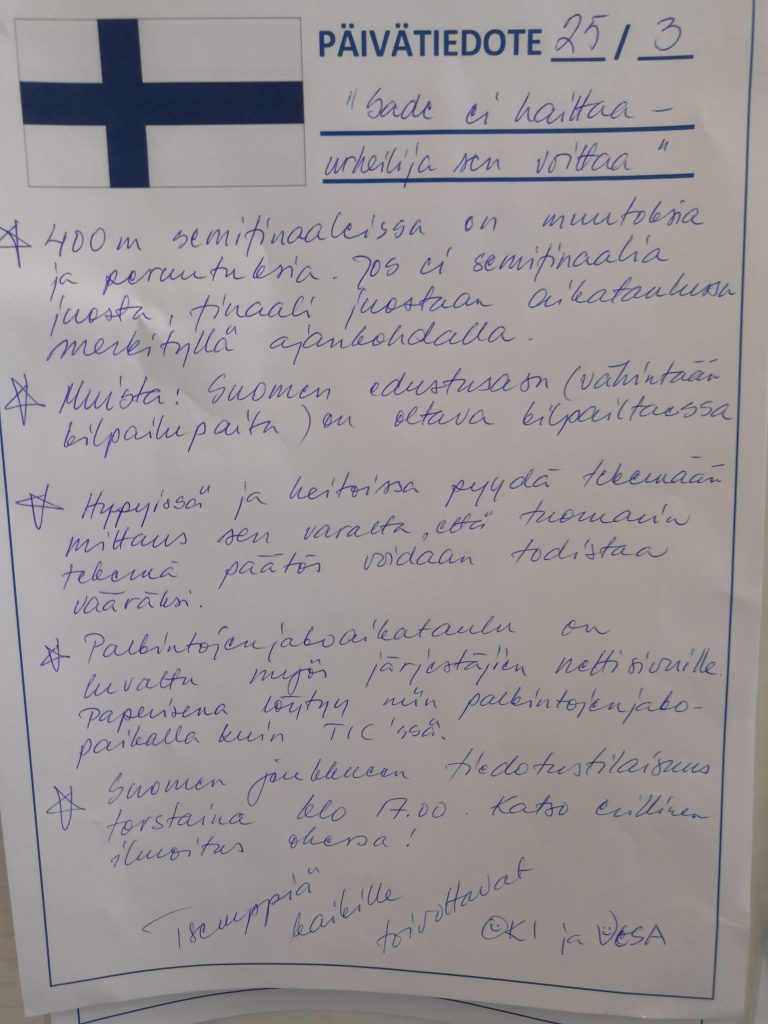 PÄIVÄTIEDOTE 25 / 3
"Sade ei haittaa –
urheilija sen voittaa"
400 m semifinaaleissa on muutoksia
ja peruutuksia. Jos ei semifinaalia
juosta, finaali juostaan aikataulussa
merkityllä ajankohdalla.
Muista: Suomen edustusasu (vähintään
kilpailupaita) on oltava kilpailtaessa
Hypyissä ja heitoissa pyydä tekemään
mittaus sen varalta, että tuomarin
tekemä päätös voidaan todistaa
vääräksi.
Palkintojenjakoaikataulu on
luvattu myös järjestäjien nettisivuille.
Paperisena löytyy niin palkintojenjako-
paikalla kuin TIC'ssä.
Suomen joukkueen tiedotustilaisuus
torstaina klo 17.00. Katso erillinen
ilmoitus ohessa!
Tsemppiä
kaikille
toivottavat
OKI ja VESA